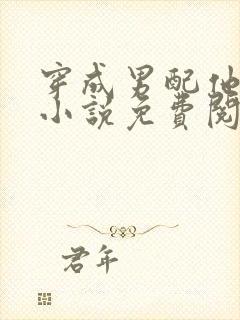 穿成男配他
小说免費閱
君年